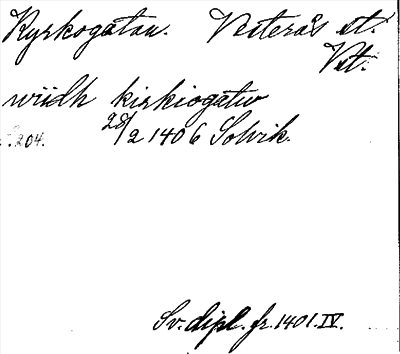 Kyrkogatan. Västerås st.
Vst.
wiidh kirkiogatw
28/2 1406 Solvik.
s. 204.
Sv. dipl. fr. 1401. IV.